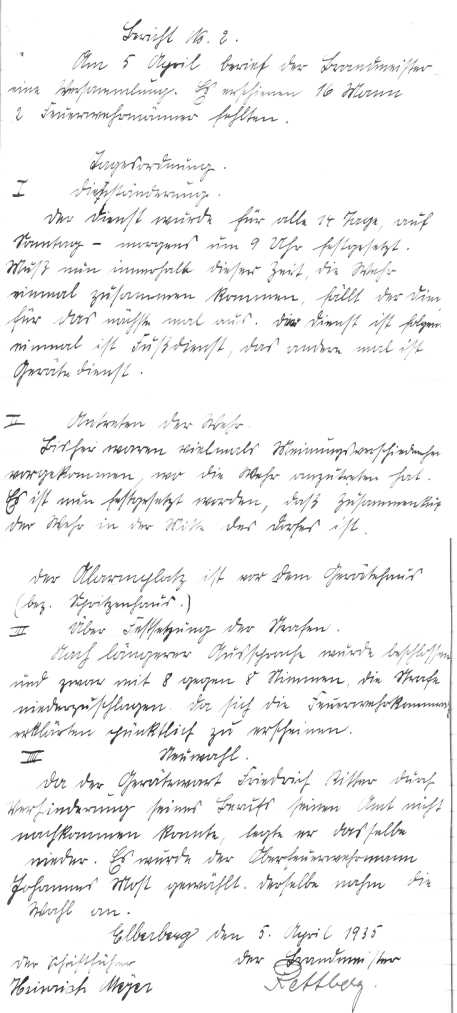 Bericht No. 2.
Am 5 April berief der Brandmeister
eine Versammlung. Es erschienen 16 Mann
2 Feuerwehrmänner fehlten.
Tagesordnung.
I Dienständerung.
Der Dienst wurde für alle 14 Tage, auf
Sonntag - morgens um 9 Uhr festgesetzt.
Muß nun innerhalb dieser Zeit, die Wehr
einmal zusammen kommen, fällt der Dien
für das nächste mal aus. Der Dienst ist folgen
einmal ist Fußdienst, das andere mal ist
Gerätedienst.
II Antreten der Wehr.
Bisher waren vielmals Meinungsverschiedenhei
vorgekommen, wo die Wehr anzutreten hat.
Es ist nun festgesetzt worden, daß Zusammenkun
der Wehr in der Mitte des Dorfes ist.
Der Alarmplatz ist vor dem Gerätehaus
(bez. Spritzenhaus.)
III Über Festsetzung der Strafen.
Nach längerer Aussprache wurde beschlossen
und zwar mit 8 gegen 8 Stimmen, die Strafe
niederzuschlagen. Da sich die Feuerwehrkameraden
erklärten pünktlich zu erscheinen.
IIII Neuwahl.
Da der Gerätewart Friedrich Ritter durch
Verhinderung seines Berufs seinen Amt nicht
nachkommen konnte, legte er dasselbe
nieder. Es wurde der Oberfeuerwehrmann
Johannes Most gewählt. Derselbe nahm die
Wahl an.
Elberberg den 5. April 1935
Der Schriftführer der Brandmeister
Heinrich Meyer Rettberg.